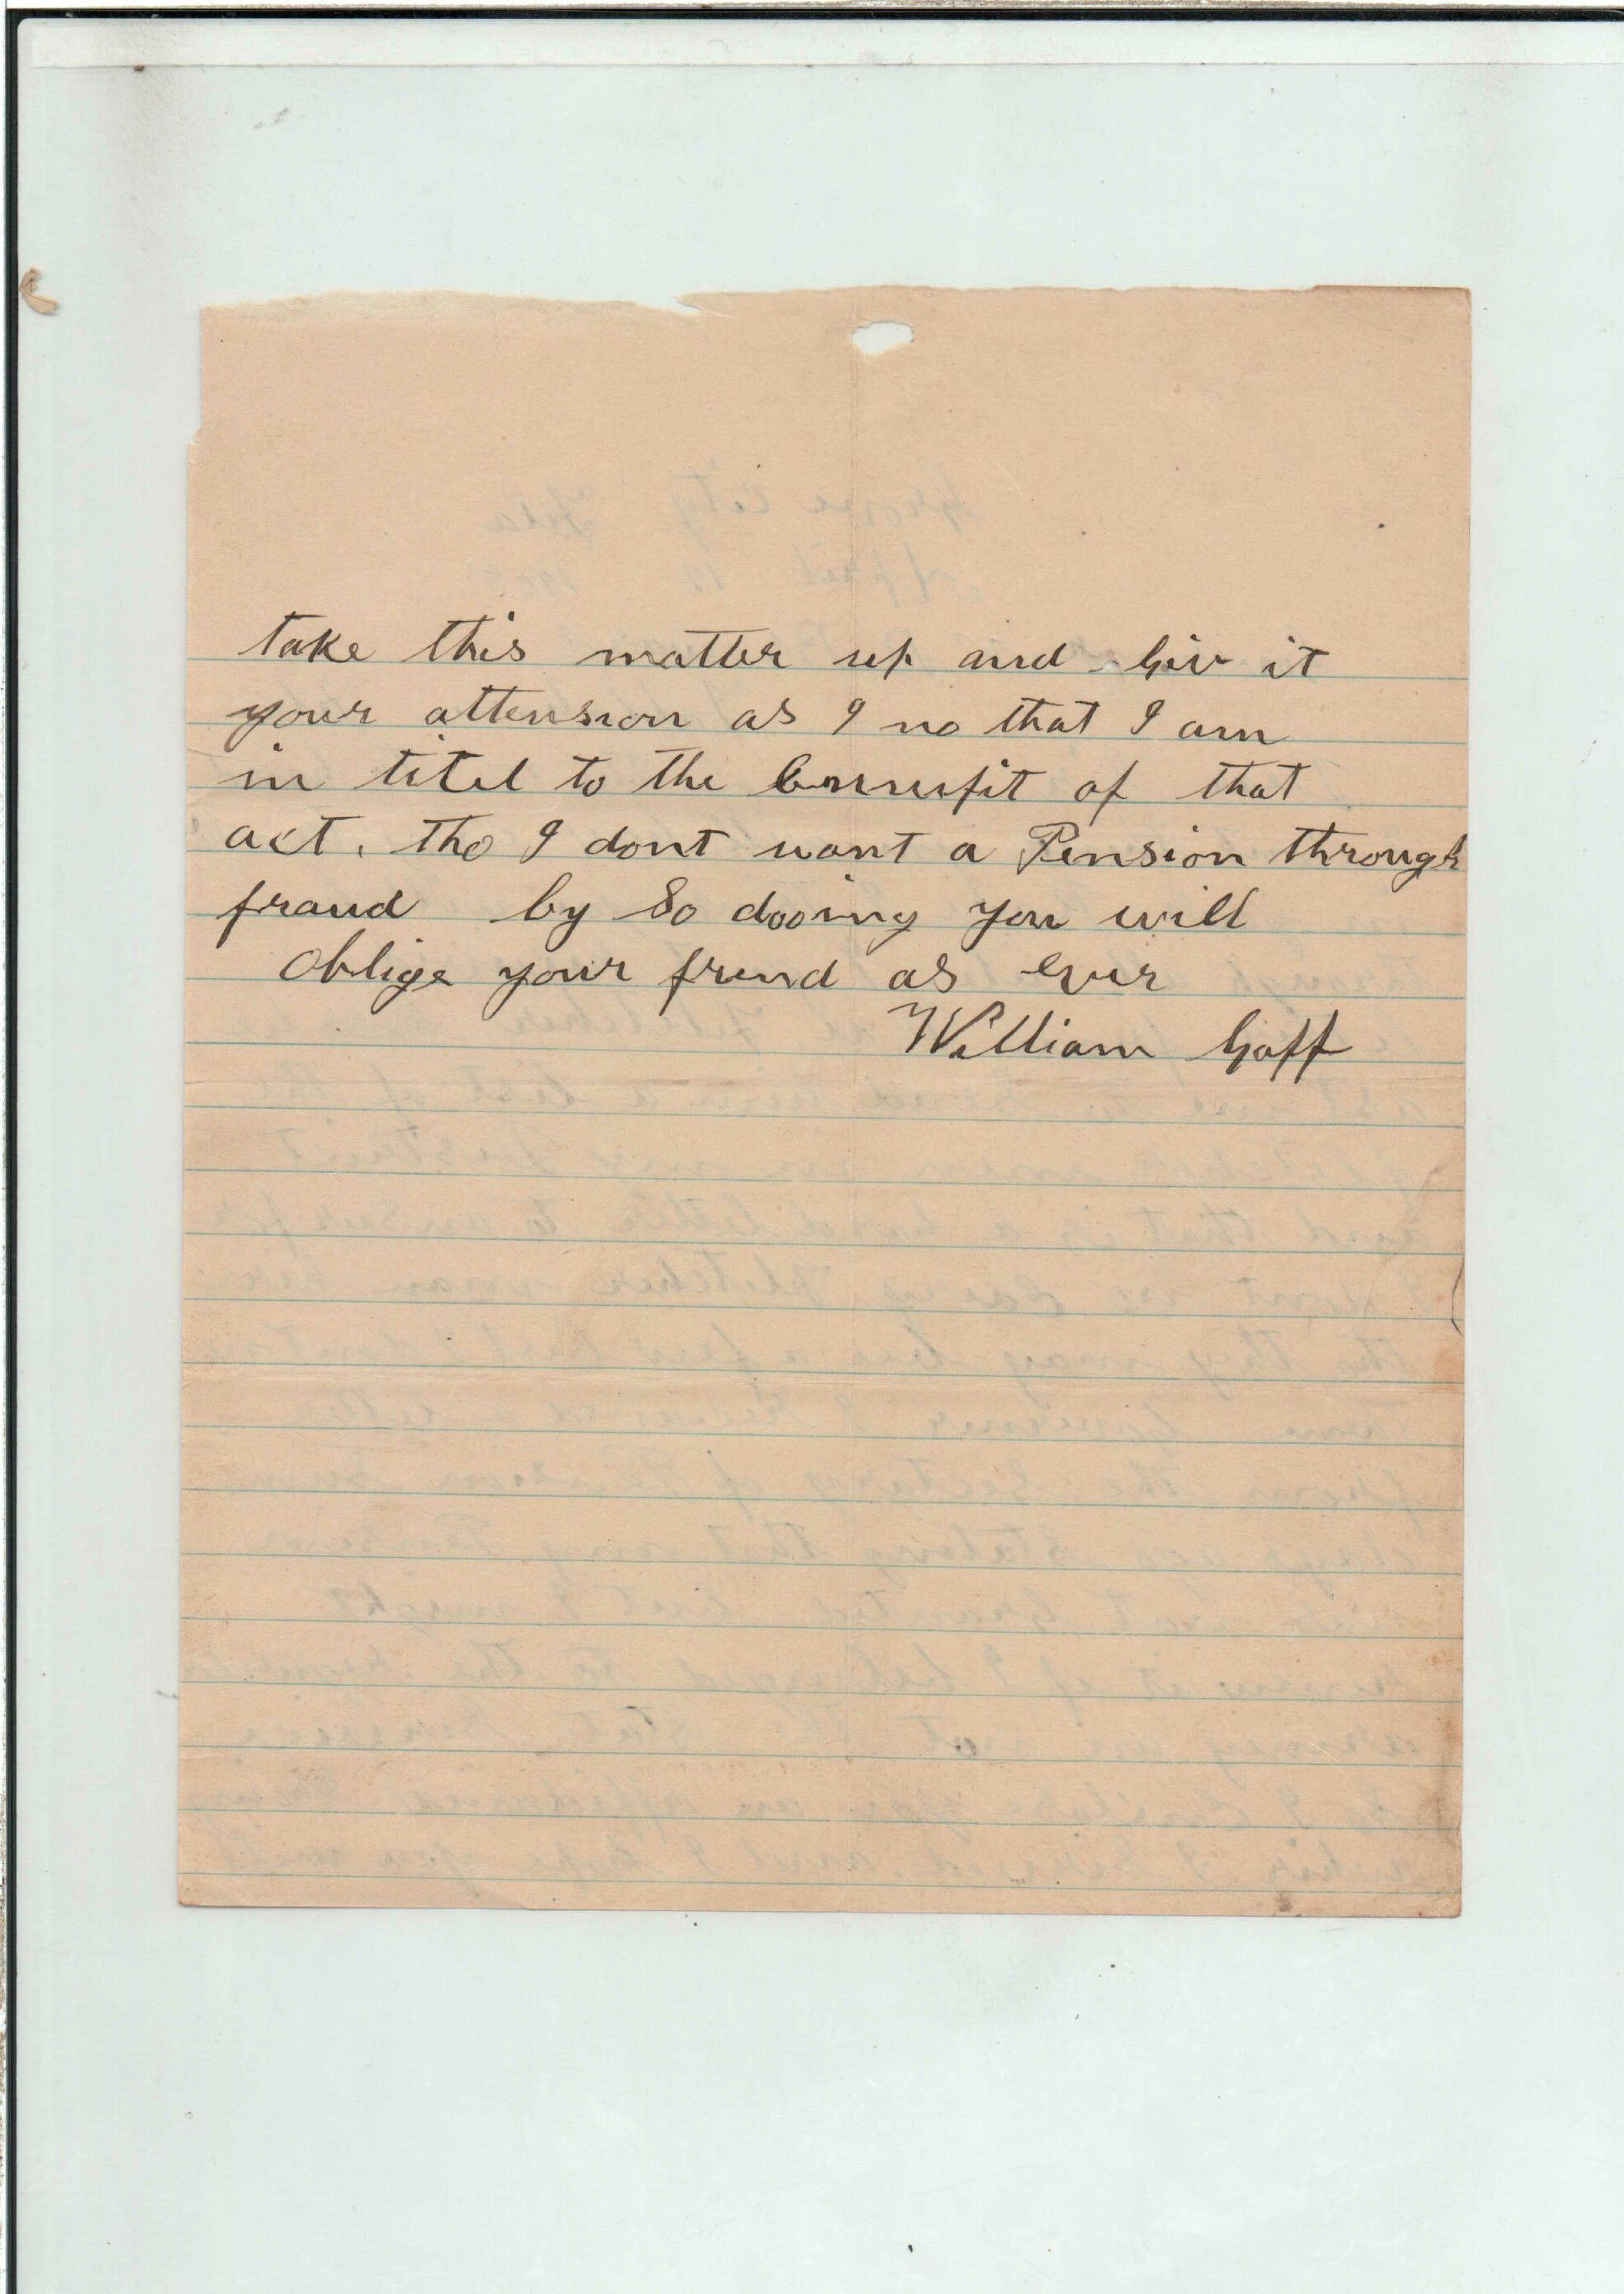 take this matter up and Giv it
your attension as I no that I am
in titel to the Bennefit of that
act. tho I dont want a Pension through
fraud by So dooing you will
oblige your frend as ever
William Goff